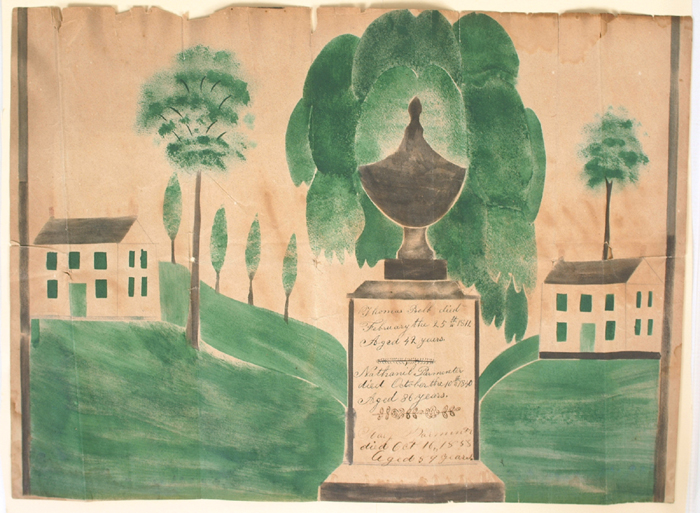 Thomas Holt died
February the 25th
Aged 42 years.
Nathaniel Parmenter
died October the 10th 1830
Aged 86 years.
Parmenter
died Oct 16, 1853
Aged 89 years